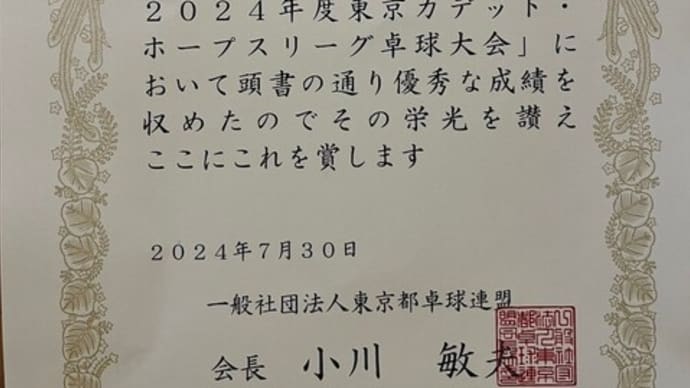 ２０２４年度東京カデット・
ホープスリーグ卓球大会」に
おいて頭書の通り優秀な成績を
収めたのでその栄光を讃え
ここにこれを賞します
２０２４年７月３０日
一般社団法人東京都卓球連盟
会長 小川 敏夫